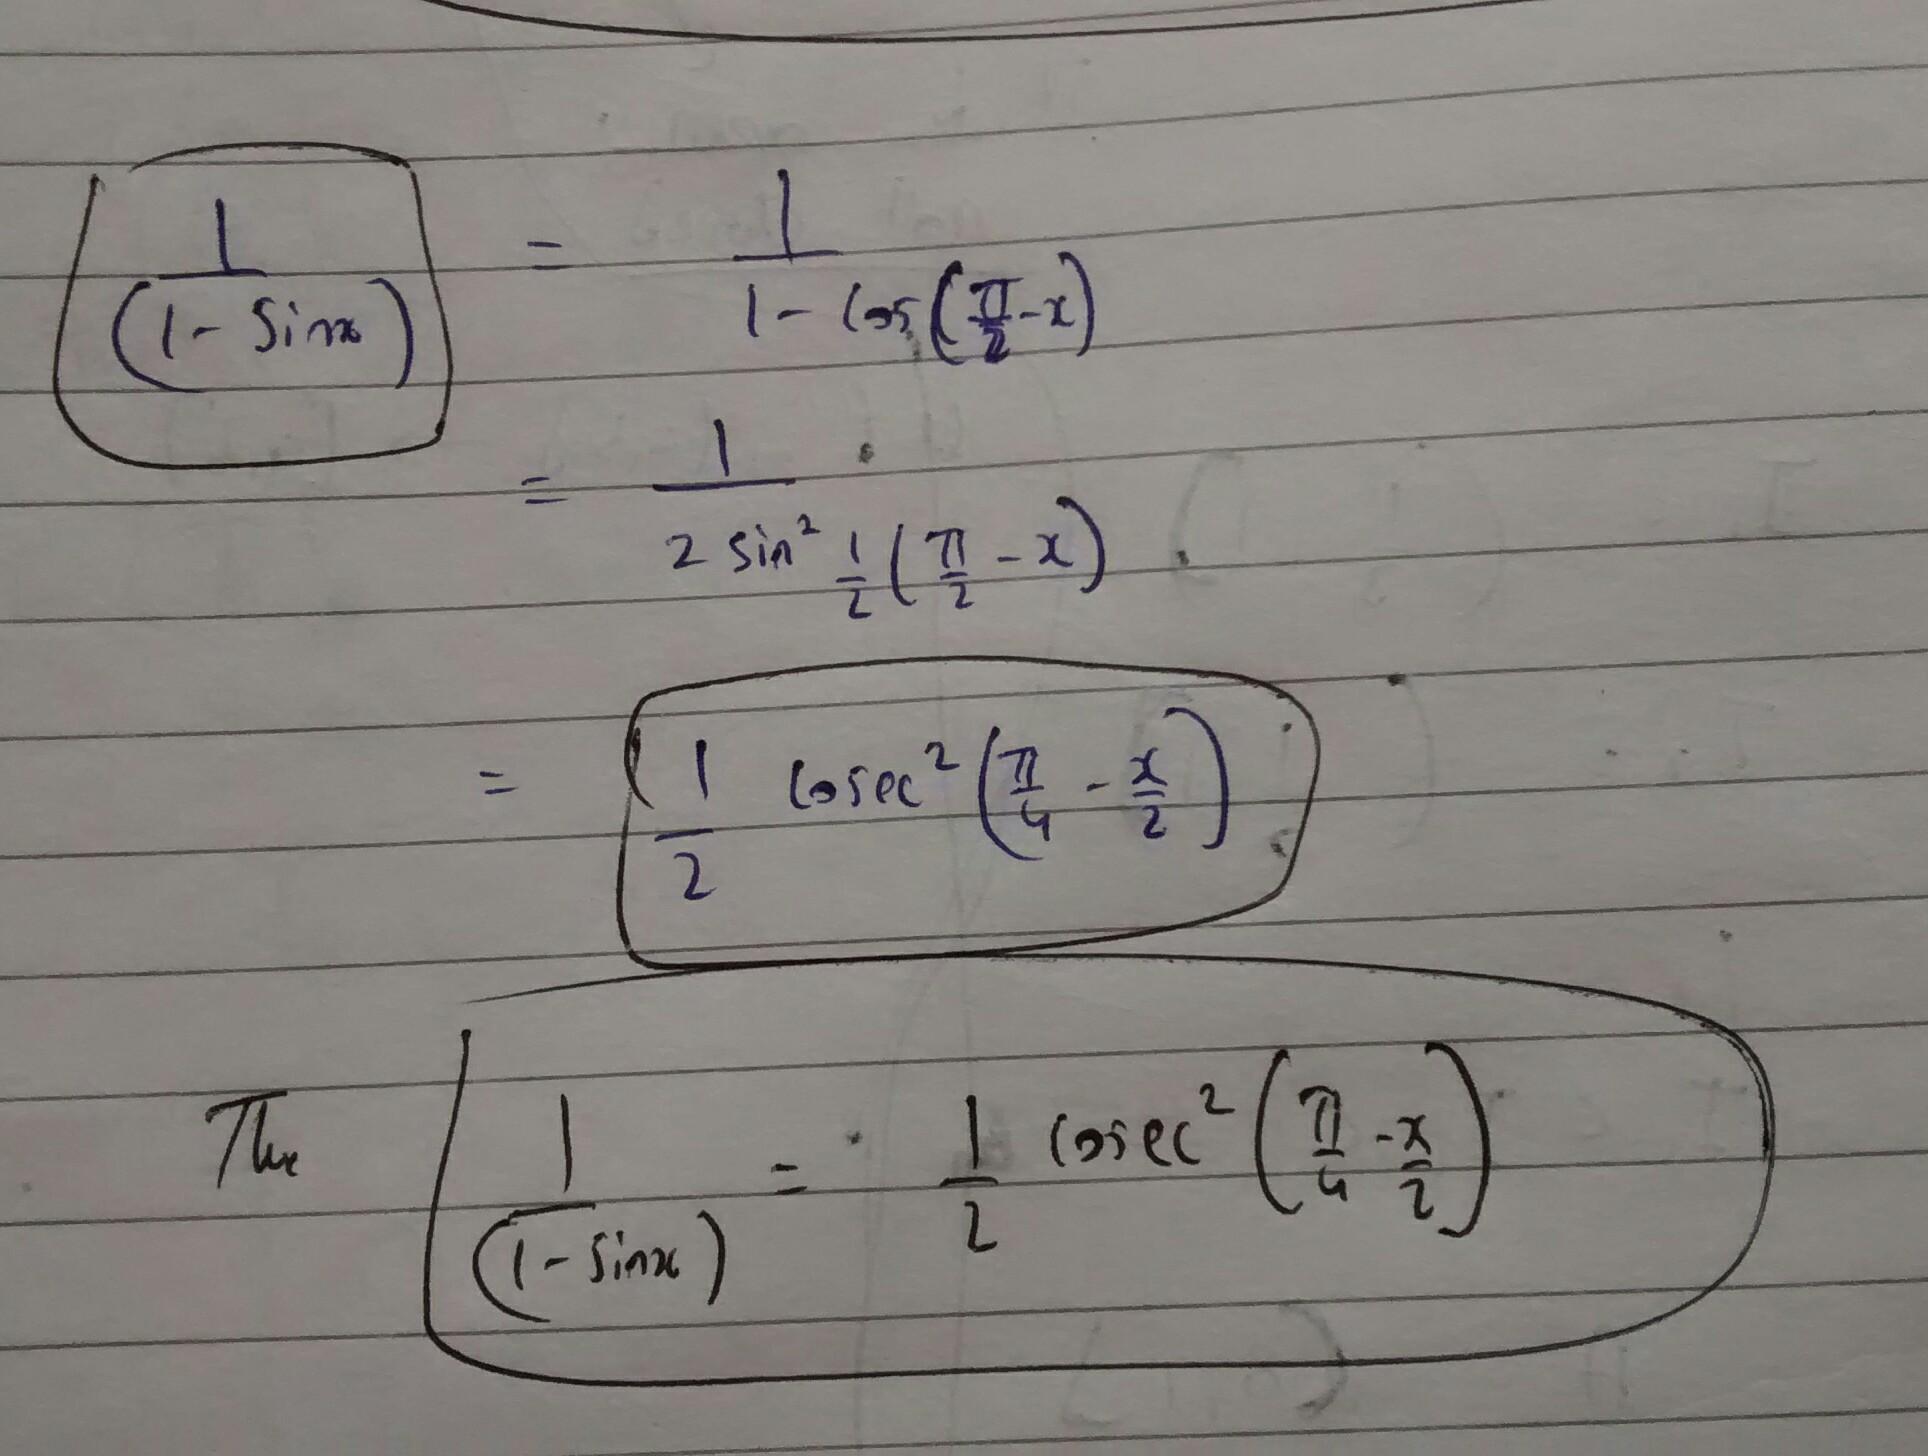 1/(1 - Sinx) = 1/(1 - Cos(π/2 - x))
= 1/(2 sin² 1/2 (π/2 - x))
= 1/2 Cosec² (π/4 - x/2)
1/(1 - Sinx) = 1/2 Cosec² (π/4 - x/2)